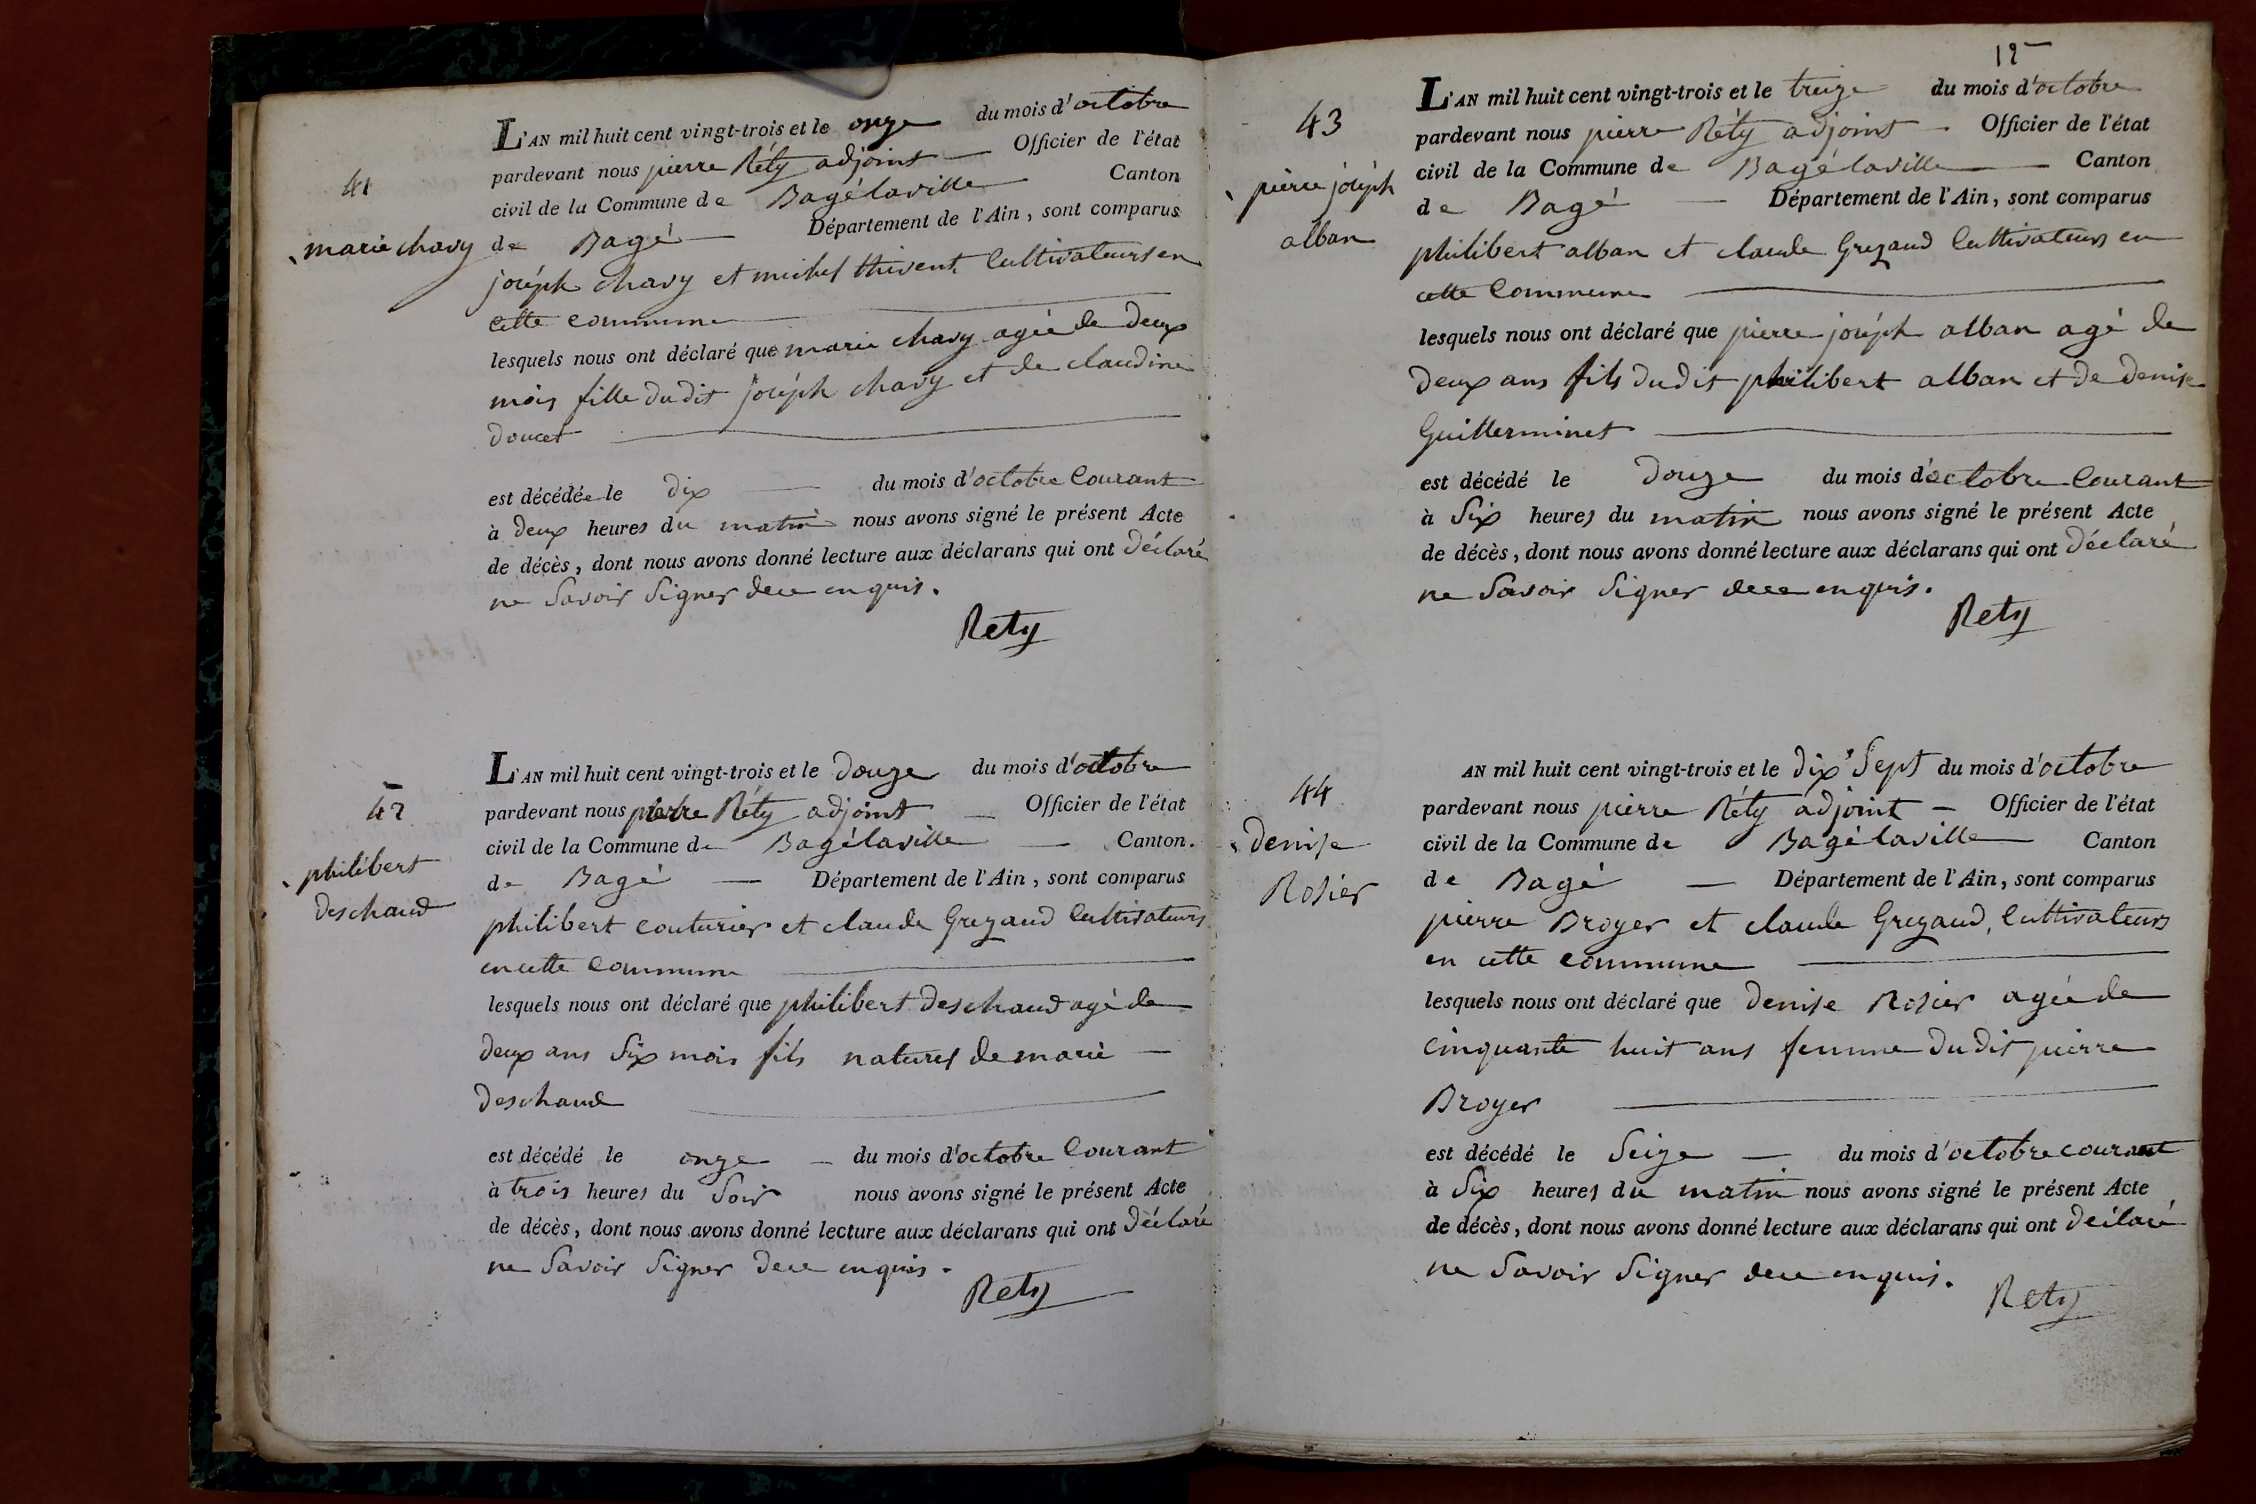 41
marie chavy
L'AN mil huit cent vingt-trois et le onze du mois d'octobre
pardevant nous pierre Réty adjoint — Officier de l'état
civil de la Commune de Bagélaville Canton
de Bagé — Département de l'Ain, sont comparus
joséph chavy et michel thivent Cultivateurs en
cette commune
lesquels nous ont déclaré que marie chavy agée de deux
mois fille dudit joséph chavy et de claudine
doucet
est décédée le dix — du mois d'octobre Courant
à deux heures du matin nous avons signé le présent Acte
de décès, dont nous avons donné lecture aux déclarans qui ont déclaré
ne Savoir Signer de ce enquis.
Rety
42
philibert
deschaud
L'AN mil huit cent vingt-trois et le douze du mois d'octobre
pardevant nous pierre Réty adjoint — Officier de l'état
civil de la Commune de Bagélaville — Canton.
de Bagé — Département de l'Ain, sont comparus
philibert couturier et claude Grezaud Cultivateurs
en cette Commune
lesquels nous ont déclaré que philibert deschaud agé de
deux ans Six mois fils naturel de marie —
deschaud
est décédé le onze — du mois d'octobre Courant
à trois heures du Soir nous avons signé le présent Acte
de décès, dont nous avons donné lecture aux déclarans qui ont déclaré
ne Savoir Signer de ce enquis.
Rety
12
43
pierre joséph
alban
L'AN mil huit cent vingt-trois et le treize du mois d'octobre
pardevant nous pierre Réty adjoint — Officier de l'état
civil de la Commune de Bagélaville — Canton
de Bagé — Département de l'Ain, sont comparus
philibert alban et claude Grezaud Cultivateurs en
cette Commune
lesquels nous ont déclaré que pierre joséph alban agé de
deux ans fils dudit philibert alban et de denise
Guillerminet
est décédé le douze du mois d'octobre Courant
à Six heures du matin nous avons signé le présent Acte
de décès, dont nous avons donné lecture aux déclarans qui ont déclaré
ne Savoir Signer de ce enquis.
Rety
44
denise
Rosier
AN mil huit cent vingt-trois et le dix Sept du mois d'octobre
pardevant nous pierre Réty adjoint — Officier de l'état
civil de la Commune de Bagélaville Canton
de Bagé — Département de l'Ain, sont comparus
pierre Broyer et claude Grezaud, Cultivateurs
en cette commune
lesquels nous ont déclaré que denise Rosier agée de
cinquante huit ans femme dudit pierre
Broyer
est décédé le Seize — du mois d'octobre courant
à Six heures du matin nous avons signé le présent Acte
de décès, dont nous avons donné lecture aux déclarans qui ont déclaré
ne Savoir Signer de ce enquis.
Rety